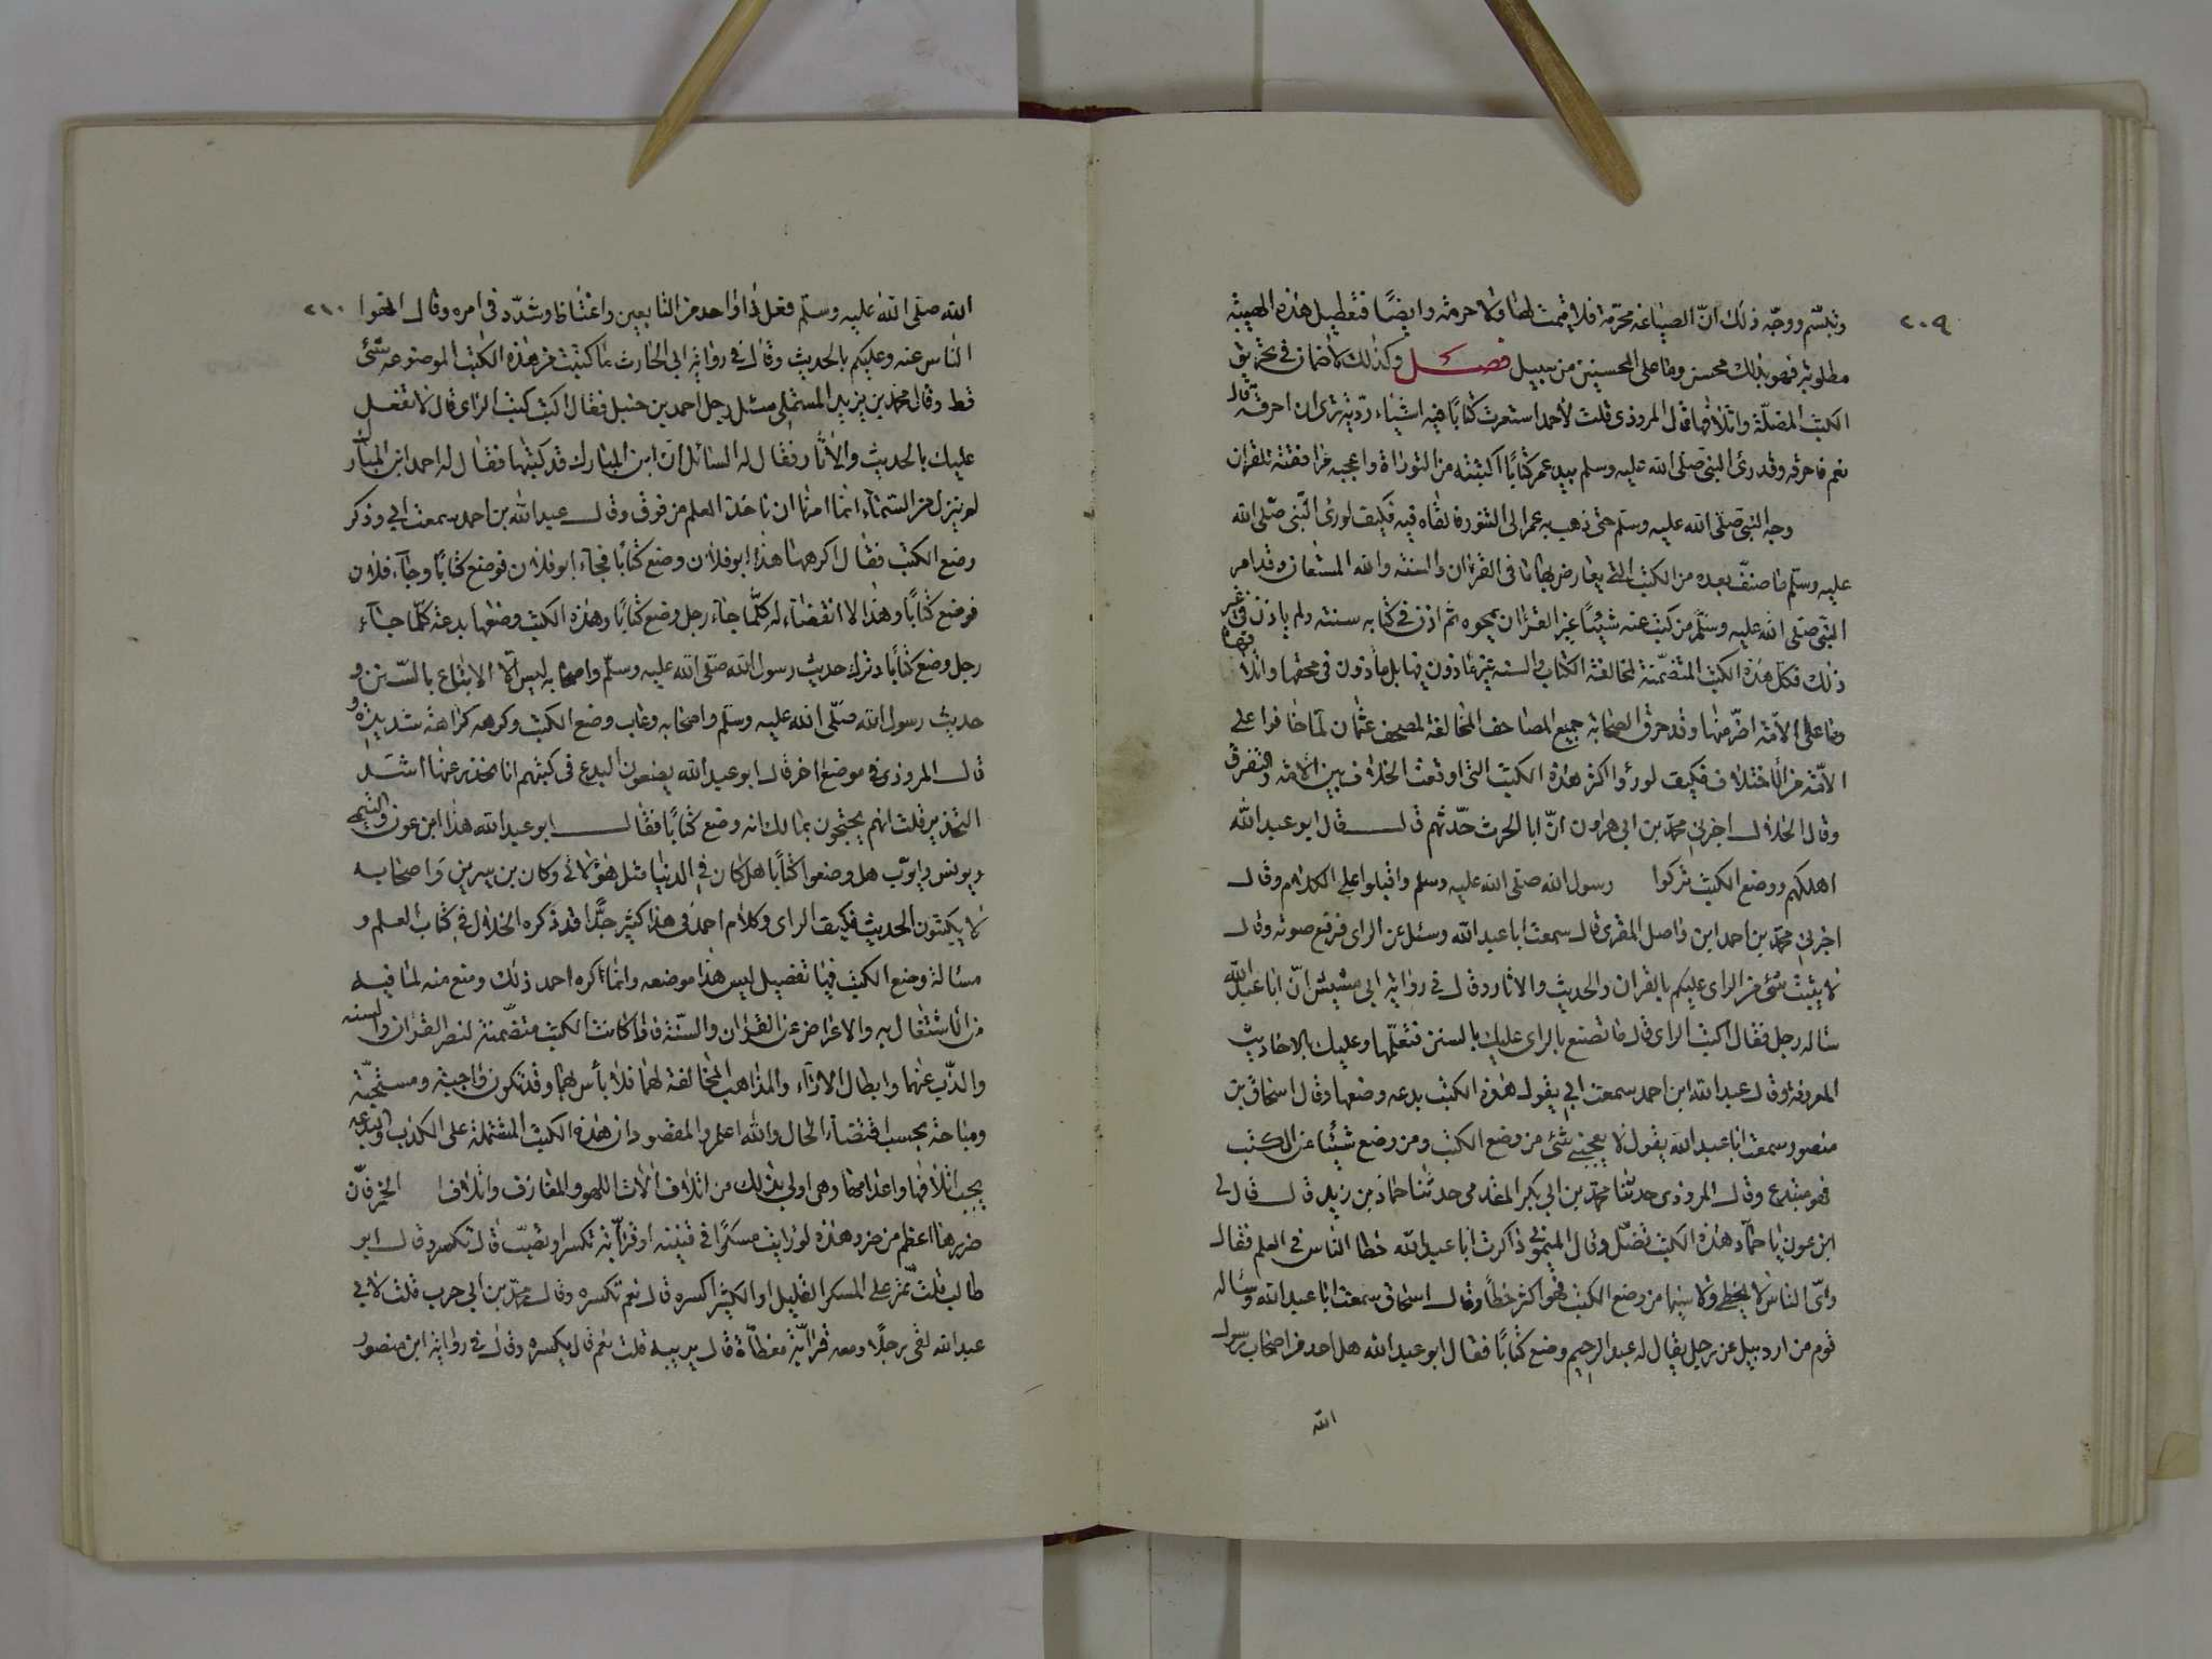 ٢٠٩
وتبسّم ووجّه ذلك انّ الصياغه محرّمة فلا قيمت لها ولا حرمة وايضًا فتعطيل هذه الهيئة
مطلوبة فهو بذلك محسن وما على المحسنين من سبيل فصل وكذلك لا ضمان في تحريق
الكتب المضلّة واتلافها قال المروذى قلت لأحمد استعرت كتابًا فيه اشياء رديّة ترى ان احرقه قال
نعم فاحرقه وقد رئ النبى صلى الله عليه وسلم بيد عمر كتابًا اكتتبه من التوراة واعجبه موافقته للقران
وجه النبى صلى الله عليه وسلم حتى ذهب به عمر الى التنور فالقاه فيه فكيف لورئ النبى صلى الله
عليه وسلم ما صنف بعده من الكتب التى يعارض بها ما فى القران والسنه والله المستعان وقد امر
النبى صلى الله عليه وسلم من كتب عنه شيئًا غير القران يمحوه ثم اذن فى كتابه سنته ولم ياذن فى غير
ذلك فكل هذه الكتب المتضمّنة لمخالفة الكتاب والسنه غير ماذون فيها بل ماذون فى محقها واتلافها
وما على الامّة اضرّ منها وقد حرق الصحابة جميع المصاحف المخالفة لمصحف عثمان لما خافوا على
الامّة من الاختلاف فكيف لو رؤا اكثر هذه الكتب التى اوقعت الخلاف بين الامّة والتفرق
وقال الخلال اخبرنى محمد بن ابى هرون انّ ابا الحرث حدّثهم قال قال ابو عبد الله
اهلكهم ووضع الكتب تركوا رسول الله صلى الله عليه وسلم واقبلوا على الكلام وقال
اخبرنى محمّد بن احمد ابن واصل المقرى قال سمعت ابا عبد الله وسئل عن الراى فرفع صوته وقال
لا يثبت شئ من الراى عليكم بالقران والحديث والاثار وقال فى رواية ابى مشيش انّ ابا عبد الله
ساله رجل فقال اكتب الراى قال ما تصنع بالراى عليك بالسنن فتعلّمها وعليك بالاحاديث
المعروفة وقال عبد الله ابن احمد سمعت ابى يقول هذه الكتب بدعه وضعها وقال اسحاق بن
منصور سمعت ابا عبد الله يقول لا يعجبنى شئ من وضع الكتب ومن وضع شيئا من الكتب
فهو مبتدع وقال المروذى حدثنا محمّد بن ابى بكر المقدمى حدثنا حماد بن زيد قال قال لى
ابن عون يا حمّاد هذه الكتب تضلّ وقال الميمونى ذاكرت ابا عبد الله خطا الناس فى العلم فقال
واىّ الناس لا يخطى ولا سيما من وضع الكتب فهو اكثر خطأ وقال اسحاق سمعت ابا عبد الله وساله
قوم من اردبيل عن رجل يقال له عبد الرحيم وضع كتابًا فقال ابو عبد الله هل احد من اصحاب رسول
الله
٢١٠
الله صلى الله عليه وسلم فعل ذا او احد من التابعين واغتاظ وشدّد فى امره وقال انهوا
الناس عنه وعليكم بالحديث وقال فى رواية ابى الحارث ما كتبت من هذه الكتب الموضوعه شئ
قط وقال محمد بن يزيد المستملى سئل رجل احمد بن حنبل فقال اكتب كتب الراى قال لا تفعل
عليك بالحديث والاثار فقال له السائل ان ابن المبارك قد كتبها فقال له احمد ابن المبارك
لم ينزل من السّماء انما امرنا ان ناخذ العلم من فوق وقال عبد الله بن احمد سمعت ابى وذكر
وضع الكتب فقال اكرهها هذا ابو فلان وضع كتابًا فجآء ابو فلان فوضع كتابًا وجآء فلان
فوضع كتابًا وهذا لا انقضاء له كلّما جاء رجل وضع كتابًا وهذه الكتب وضعها بدعة كلّما جاء
رجل وضع كتابًا وترك حديث رسول الله صلى الله عليه وسلّم واصحابه ليس الّا الاتباع بالسّنن و
حديث رسول الله صلّى الله عليه وسلم واصحابه وعاب وضع الكتب وكرهه كراهة شديدة و
قال المروذى فى موضع اخر قال ابو عبد الله يضعون البدع فى كتبهم انا نحذر عنها اشد
التحذير قلت انهم يحتجون بمالك انه وضع كتابًا فقال ابو عبد الله هذا ابن عون والتيمى
ويونس وايوّب هل وضعوا كتابًا هل كان فى الدنيا مثل هؤلائى وكان بن سيرين واصحابه
لا يكتبون الحديث فكيف الراى وكلام احمد فى هذا كثير جدًّا قد ذكره الخلال فى كتاب العلم و
مسالة وضع الكتب فيها تفصيل ليس هذا موضعه وانما اكره احمد ذلك ومنع منه لما فيه
من الاشتغال به والاعراض عن القران والسنّة فاذا كانت الكتب متضمّنة لنصر القران والسنه
والذّب عنهما وابطال الاراء والمذاهب المخالفة لهما فلا بأس بها وقد تكون واجبة ومستحبّة
ومباحة بحسب اقتضاء الحال والله اعلم والمقصود ان هذه الكتب المشتملة على الكذب والبدعه
يجب اتلافها واعدامها وهى اولى بذلك من اتلاف الات اللهو والمعازف واتلاف الخمر فانّ
ضررها اعظم من ضر وهذه لو رايت مسكرًا فى قنينه او قرابة تكسر او تصبّ قال تكسر وقال ابو
طالب قلت تمر على المسكر القليل او الكثير اكسره قال نعم تكسره وقال محمّد بن ابى حرب قلت لابى
عبد الله لقى رجلًا ومعه قرابة مغطّاة قال يريبه قلت نعم قال يكسره وقال فى رواية ابن منصور